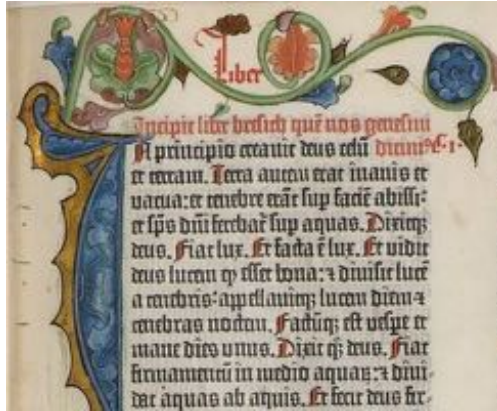 Liber
Incipit liber bresith quē nos genesim
In principio creavit deus celū dicim⁹ C·1·
et terram. Terra autem erat inanis et
vacua: et tenebre erāt sup faciē abissi:
et sp̄s dn̄i ferebat᷑ sup aquas. Dixitqꝫ
deus. Fiat lux. Et facta ē lux. Et vidit
deus lucem ꝙ esset bona: ⁊ divisit lucē
a tenebris· appellavitqꝫ lucem diem ⁊
tenebras noctem. Factūqꝫ est vespe et
mane dies unus. Dixit qꝫ deus. Fiat
firmamentū in medio aquaꝝ: ⁊ divi-
dat aquas ab aquis. Et fecit deus fir-